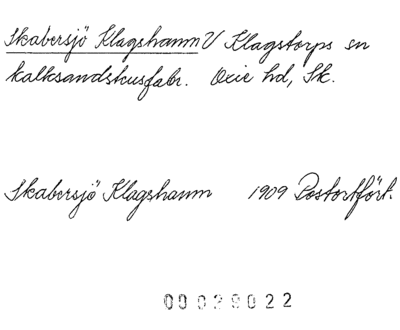 Skabersjö Klagshamn V Klagstorps sn
kalksandstensfabr. Oxie hd, Sk.
Skabersjö Klagshamn 1909 Postortfört.